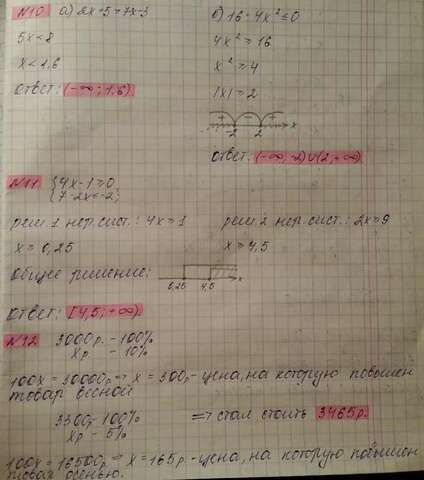 N10 а) 2x+5=7x-3
5x<8
x<1,6
ответ: (-∞; 1,6)
б) 16-4x²≤0
4x²=16
x²=4
|x|=2
+ - +
-2 2 x
ответ: (-∞; -2)∪(2; +∞)
N11 {4x-1≥0
{7-2x≤-2;
реш. 1 нер. сист.: 4x=1
x=0,25
реш. 2 нер. сист.: 2x=9
x=4,5
общее решение:
0,25 4,5 x
ответ: [4,5; +∞).
N12 3000р. - 100%
xр - 10%
100x=30000р ⇒ x=300р - цена, на которую повышен
товар весной
3300р - 100%
xр - 5%
⇒ стал стоить 3465р.
100x=16500р ⇒ x=165р - цена, на которую повышен
товар осенью.